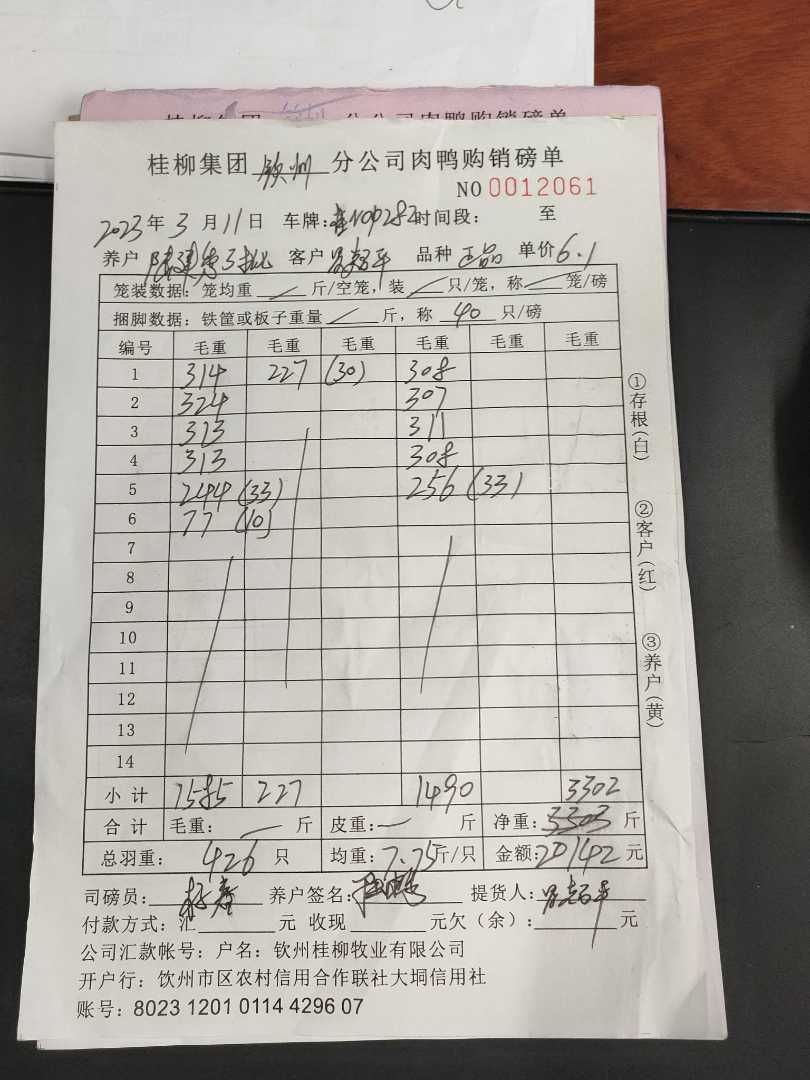 桂柳集团 钦州 分公司肉鸭购销磅单
NO 0012061
2023年 3 月 11 日 车牌:桂N09282 时间段: 至
养户 陆建 3批 客户 平 品种 正品 单价 6.1
笼装数据: 笼均重 斤/空笼, 装 只/笼, 称 笼/磅
捆脚数据: 铁筐或板子重量 斤, 称 40 只/磅
编号 毛重 毛重 毛重 毛重 毛重 毛重
1 314 227 (30) 308
2 324 307
3 313 311
4 313 308
5 244 (33) 256 (33)
6 77 (10)
7
8
9
10
11
12
13
14
小计 1585 227 1490 3302
合计 毛重: 斤 皮重: 斤 净重: 3303 斤
总羽重: 426 只 均重: 7.75 斤/只 金额: 20142 元
司磅员: 养户签名: 提货人: 平
付款方式: 汇 元 收现 元欠(余): 元
公司汇款帐号: 户名: 钦州桂柳牧业有限公司
开户行: 饮州市区农村信用合作联社大垌信用社
账号: 8023 1201 0114 4296 07
①存根(白)
②客户(红)
③养户(黄)